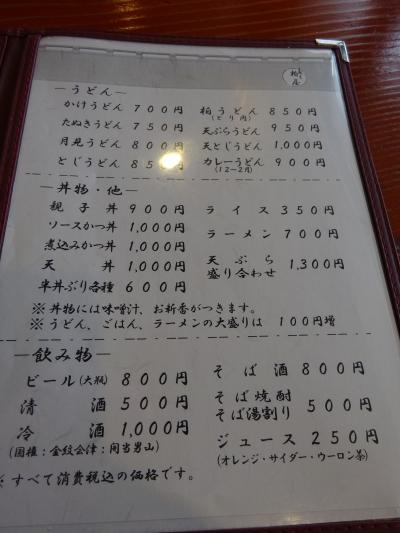 ーうどんー
かけうどん 700円
たぬきうどん 750円
月見うどん 800円
とじうどん 850円
柏うどん 850円
(とり肉)
天ぷらうどん 950円
天とじうどん 1,000円
カレーうどん 900円
(12〜2月)
ー丼物・他ー
親子丼 900円
ソースかつ丼 1,000円
煮込みかつ丼 1,000円
天丼 1,000円
半丼ぶり各種 600円
ライス 350円
ラーメン 700円
天ぷら
盛り合わせ 1,300円
※丼物には味噌汁、お新香がつきます。
※うどん、ごはん、ラーメンの大盛りは 100円増
ー飲み物ー
ビール(大瓶) 800円
清酒 500円
冷酒 1,000円
(国権:金紋会津:開当男山)
そば酒 800円
そば焼酎
そば湯割り 500円
ジュース 250円
(オレンジ・サイダー・ウーロン茶)
※すべて消費税込の価格です。